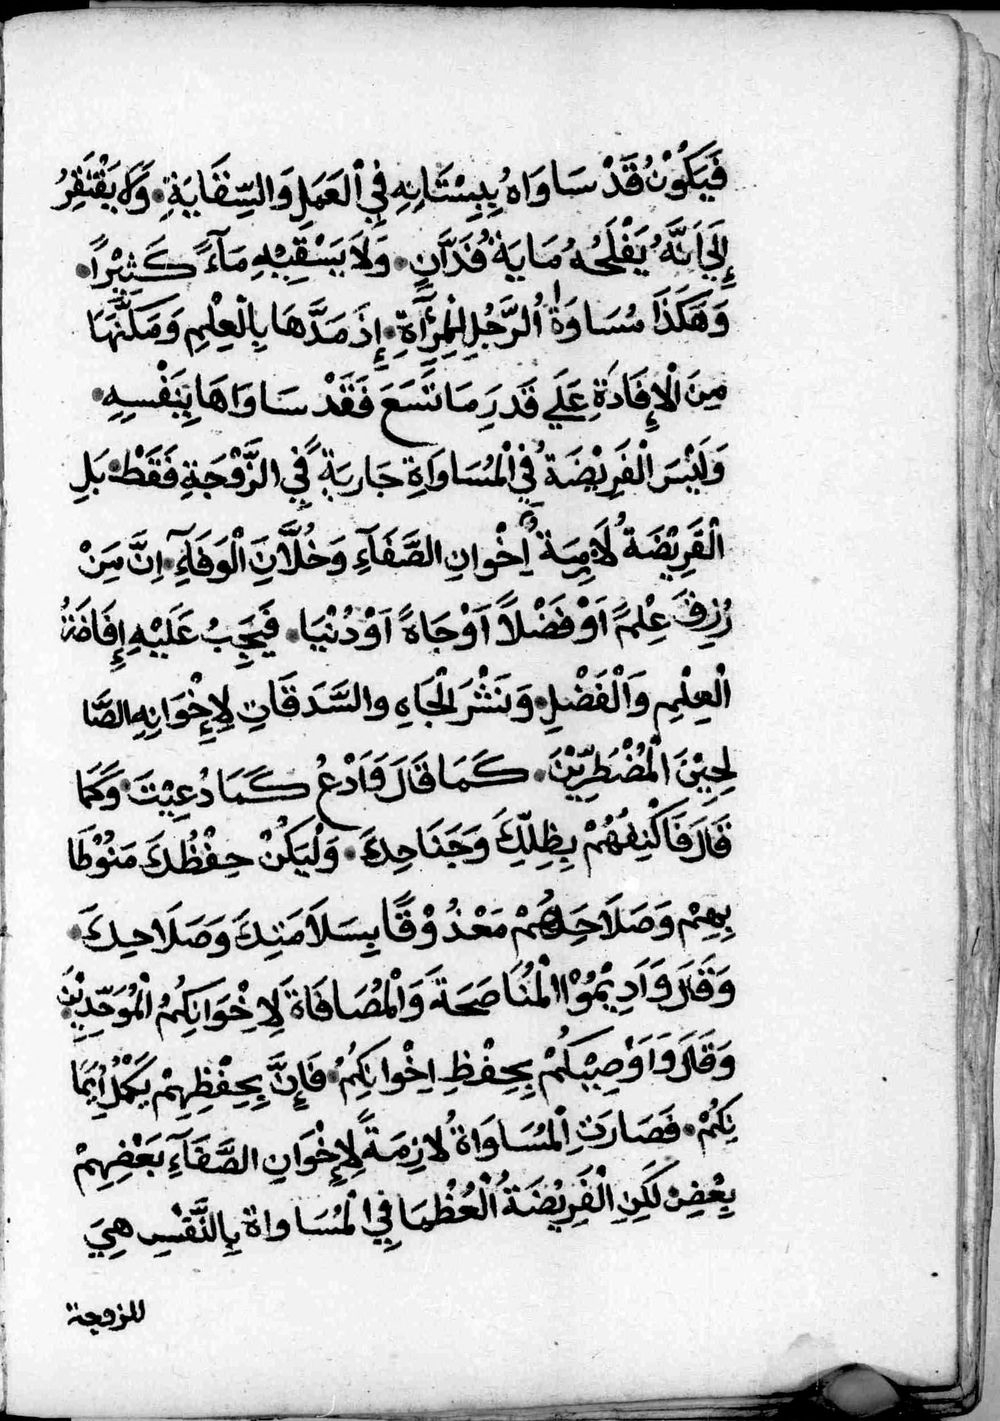 فَيَكُوْنُ قَدْ سَاوَاهُ بِبِسْتَانِهِ فِي الْعَمَلِ وَالسِّقَايَةِ. وَلَا يَفْتَقِرُ
إِلَى اَنَّهُ يَفْلَحُهُ مَايَةُ فُدَّانٍ. وَلَا يَسْقِيْهِ مَآءً كَثِيْرًا.
وَهَكَذَا مُسَاوَاةُ الرَّجُلِ لِلْمِرْأَةِ. إِذَ مَدَّهَا بِالْعِلْمِ وَمَكَّنَهَا
مِنَ الْإِفَادَةِ عَلَي قَدَرِ مَا تَسَعَ فَقَدْ سَاوَاهَا بِنَفْسِهِ.
وَلَيْسَ الْفَرِيْضَةُ فِي الْمُسَاوَاةِ جَارِيَةً فِي الزَّوْجَةِ فَقَطْ. بَلِ
الْفَرِيْضَةُ لَازِمَةُ اِخْوَانِ الصَّفَآءِ وَخُلَّانِ الْوَفَآءِ. اِنَّ مِنْ
رُزِقَ عِلْمً اَوْ فَضْلًا اَوْ جَاهً اَوْ دُنْيَا. فَيَجِبُ عَلَيْهِ إِفَاضَةُ
الْعِلْمِ وَالْفَضْلِ. وَنَشْرَ الْجَاهِ وَالسَّدَقَاتِ لِإِخْوَانِهِ الصَّا
لِحِيْنَ الْمُضْطَرِّيْنَ. كَمَا قَالَ وَادْعُ كَمَا دُعِيْتَ. وَكَمَا
قَالَ فَاكْنِفْهُمْ بِظِلِّكَ وَجَنَاحِكَ. وَلْيَكُنْ حِفْظُكَ مَنُوْطًا
بِهِمْ وَصَلَاحِهُمْ مَعْذُوْقًا بِسَلَامَتِكَ وَصَلَاحِكَ.
وَقَالَ وَادِيْمُوْا الْمُنَاصَحَةَ وَالْمُصَافَاةَ لِاِخْوَانِكُمُ الْمُوَحِّدِيْنَ.
وَقَالَ وَاَوْصِيْكُمْ بِحِفْظِ اِخْوَانِكُمْ. فَإِنَّ بِحِفْظِهِمْ يَكْمُلُ اِيْمَا
نِكُمْ. فَصَارَتِ الْمُسَاوَاةُ لَازِمَةً لِإِخْوَانِ الصَّفَآءِ بَعْضِهِمْ
بِعْضٍ لَكِنِ الْفَرِيْضَةُ الْعُظْمَا فِي الْمُسَاوَاةِ بِالنَّفْسِ هِيَ
للزوجة